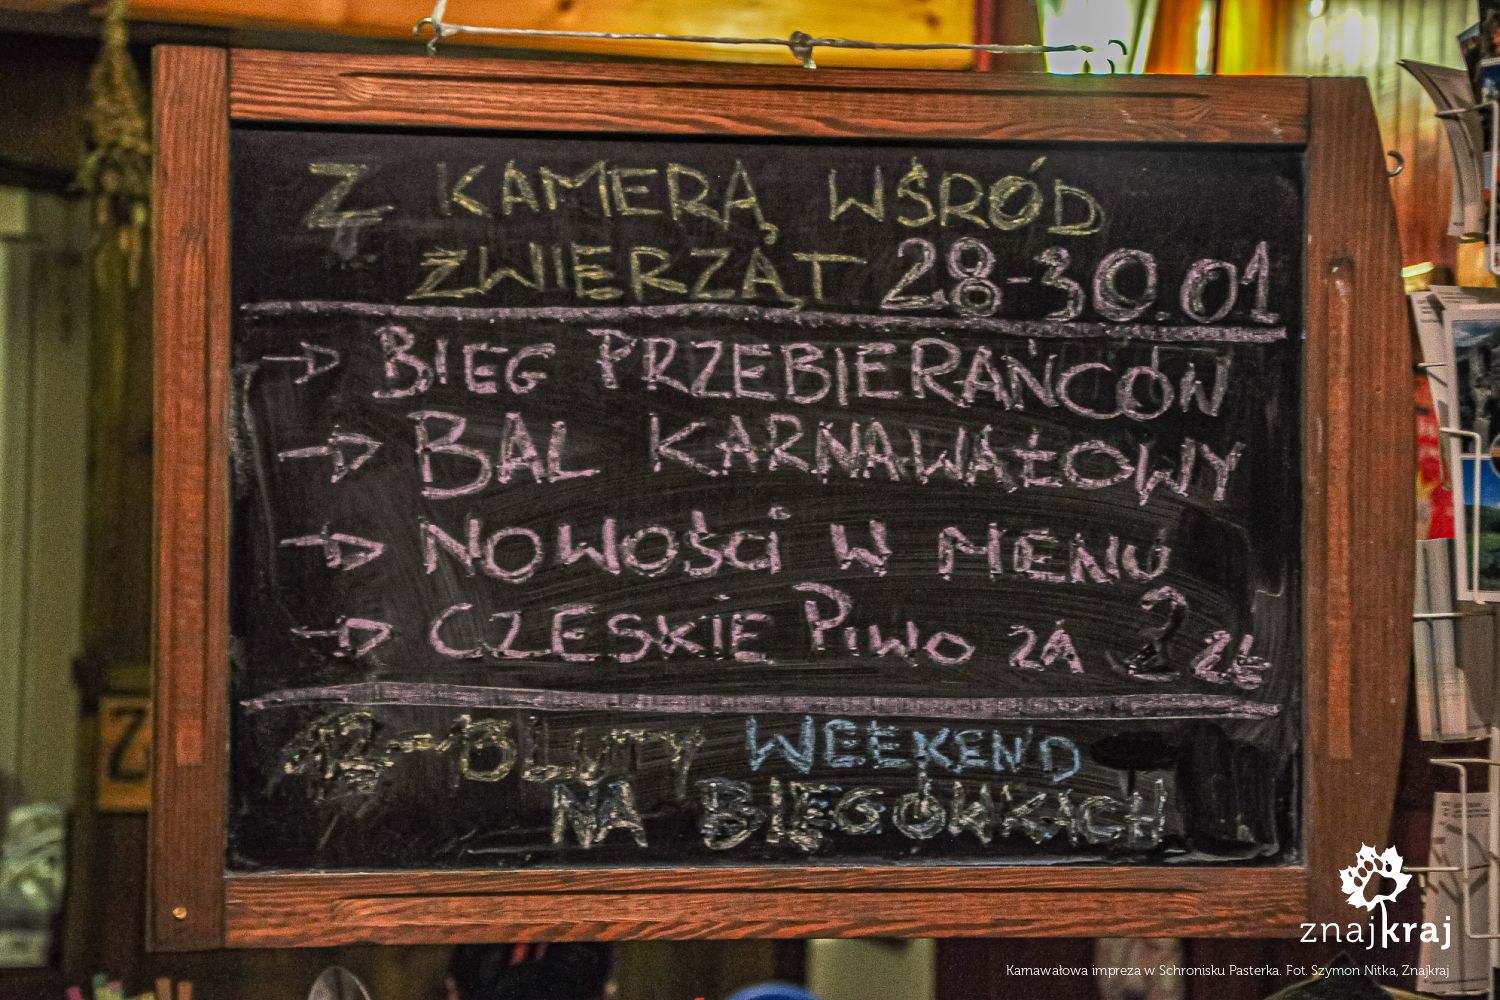 Z KAMERĄ WŚRÓD
ZWIERZĄT 28-30.01
→ BIEG PRZEBIERAŃCÓW
→ BAL KARNAWAŁOWY
→ NOWOŚCI W MENU
→ CZESKIE PIWO ZA 2 ZŁ
12-13 LUTY WEEKEND
NA BIEGÓWKACH
Z
znajkraj
Karnawałowa impreza w Schronisku Pasterka. Fot. Szymon Nitka, Znajkraj